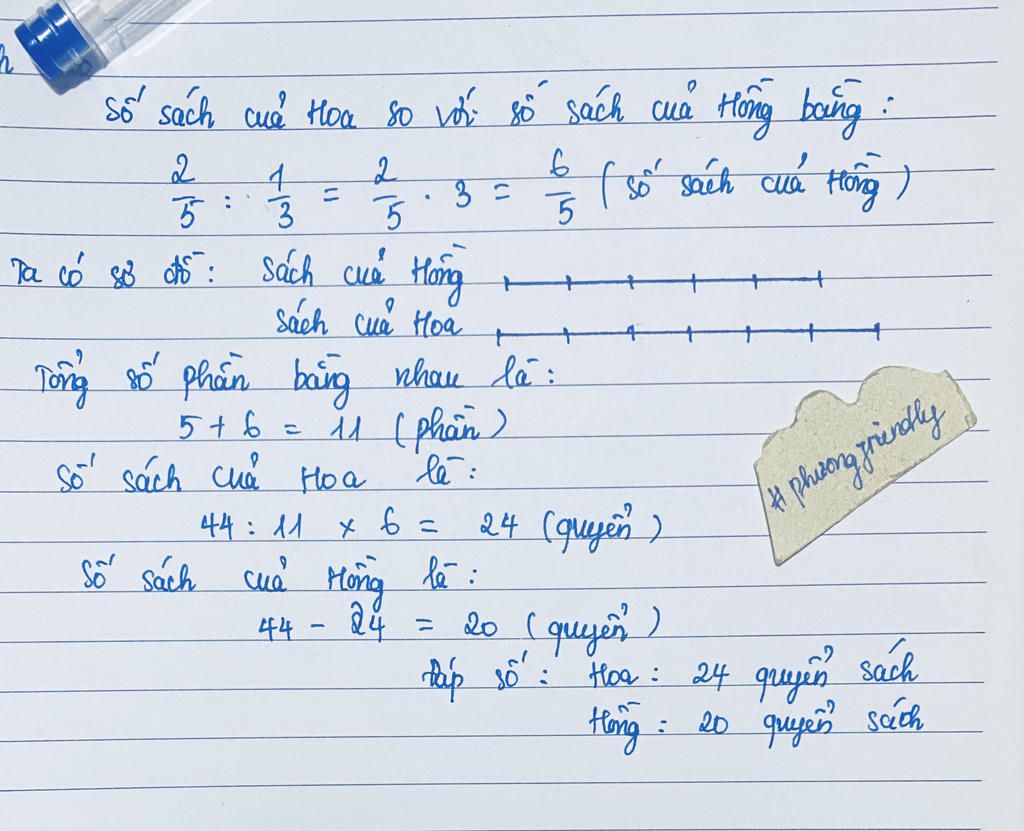 Số sách của Hoa so với số sách của Hồng bằng:
2/5 : 1/3 = 2/5 . 3 = 6/5 (số sách của Hồng)
Ta có sơ đồ: Sách của Hồng
Sách của Hoa
Tổng số phần bằng nhau là:
5 + 6 = 11 (phần)
Số sách của Hoa là:
44 : 11 x 6 = 24 (quyển)
Số sách của Hồng là:
44 - 24 = 20 (quyển)
Đáp số: Hoa: 24 quyển sách
Hồng: 20 quyển sách
#phuongfriendly